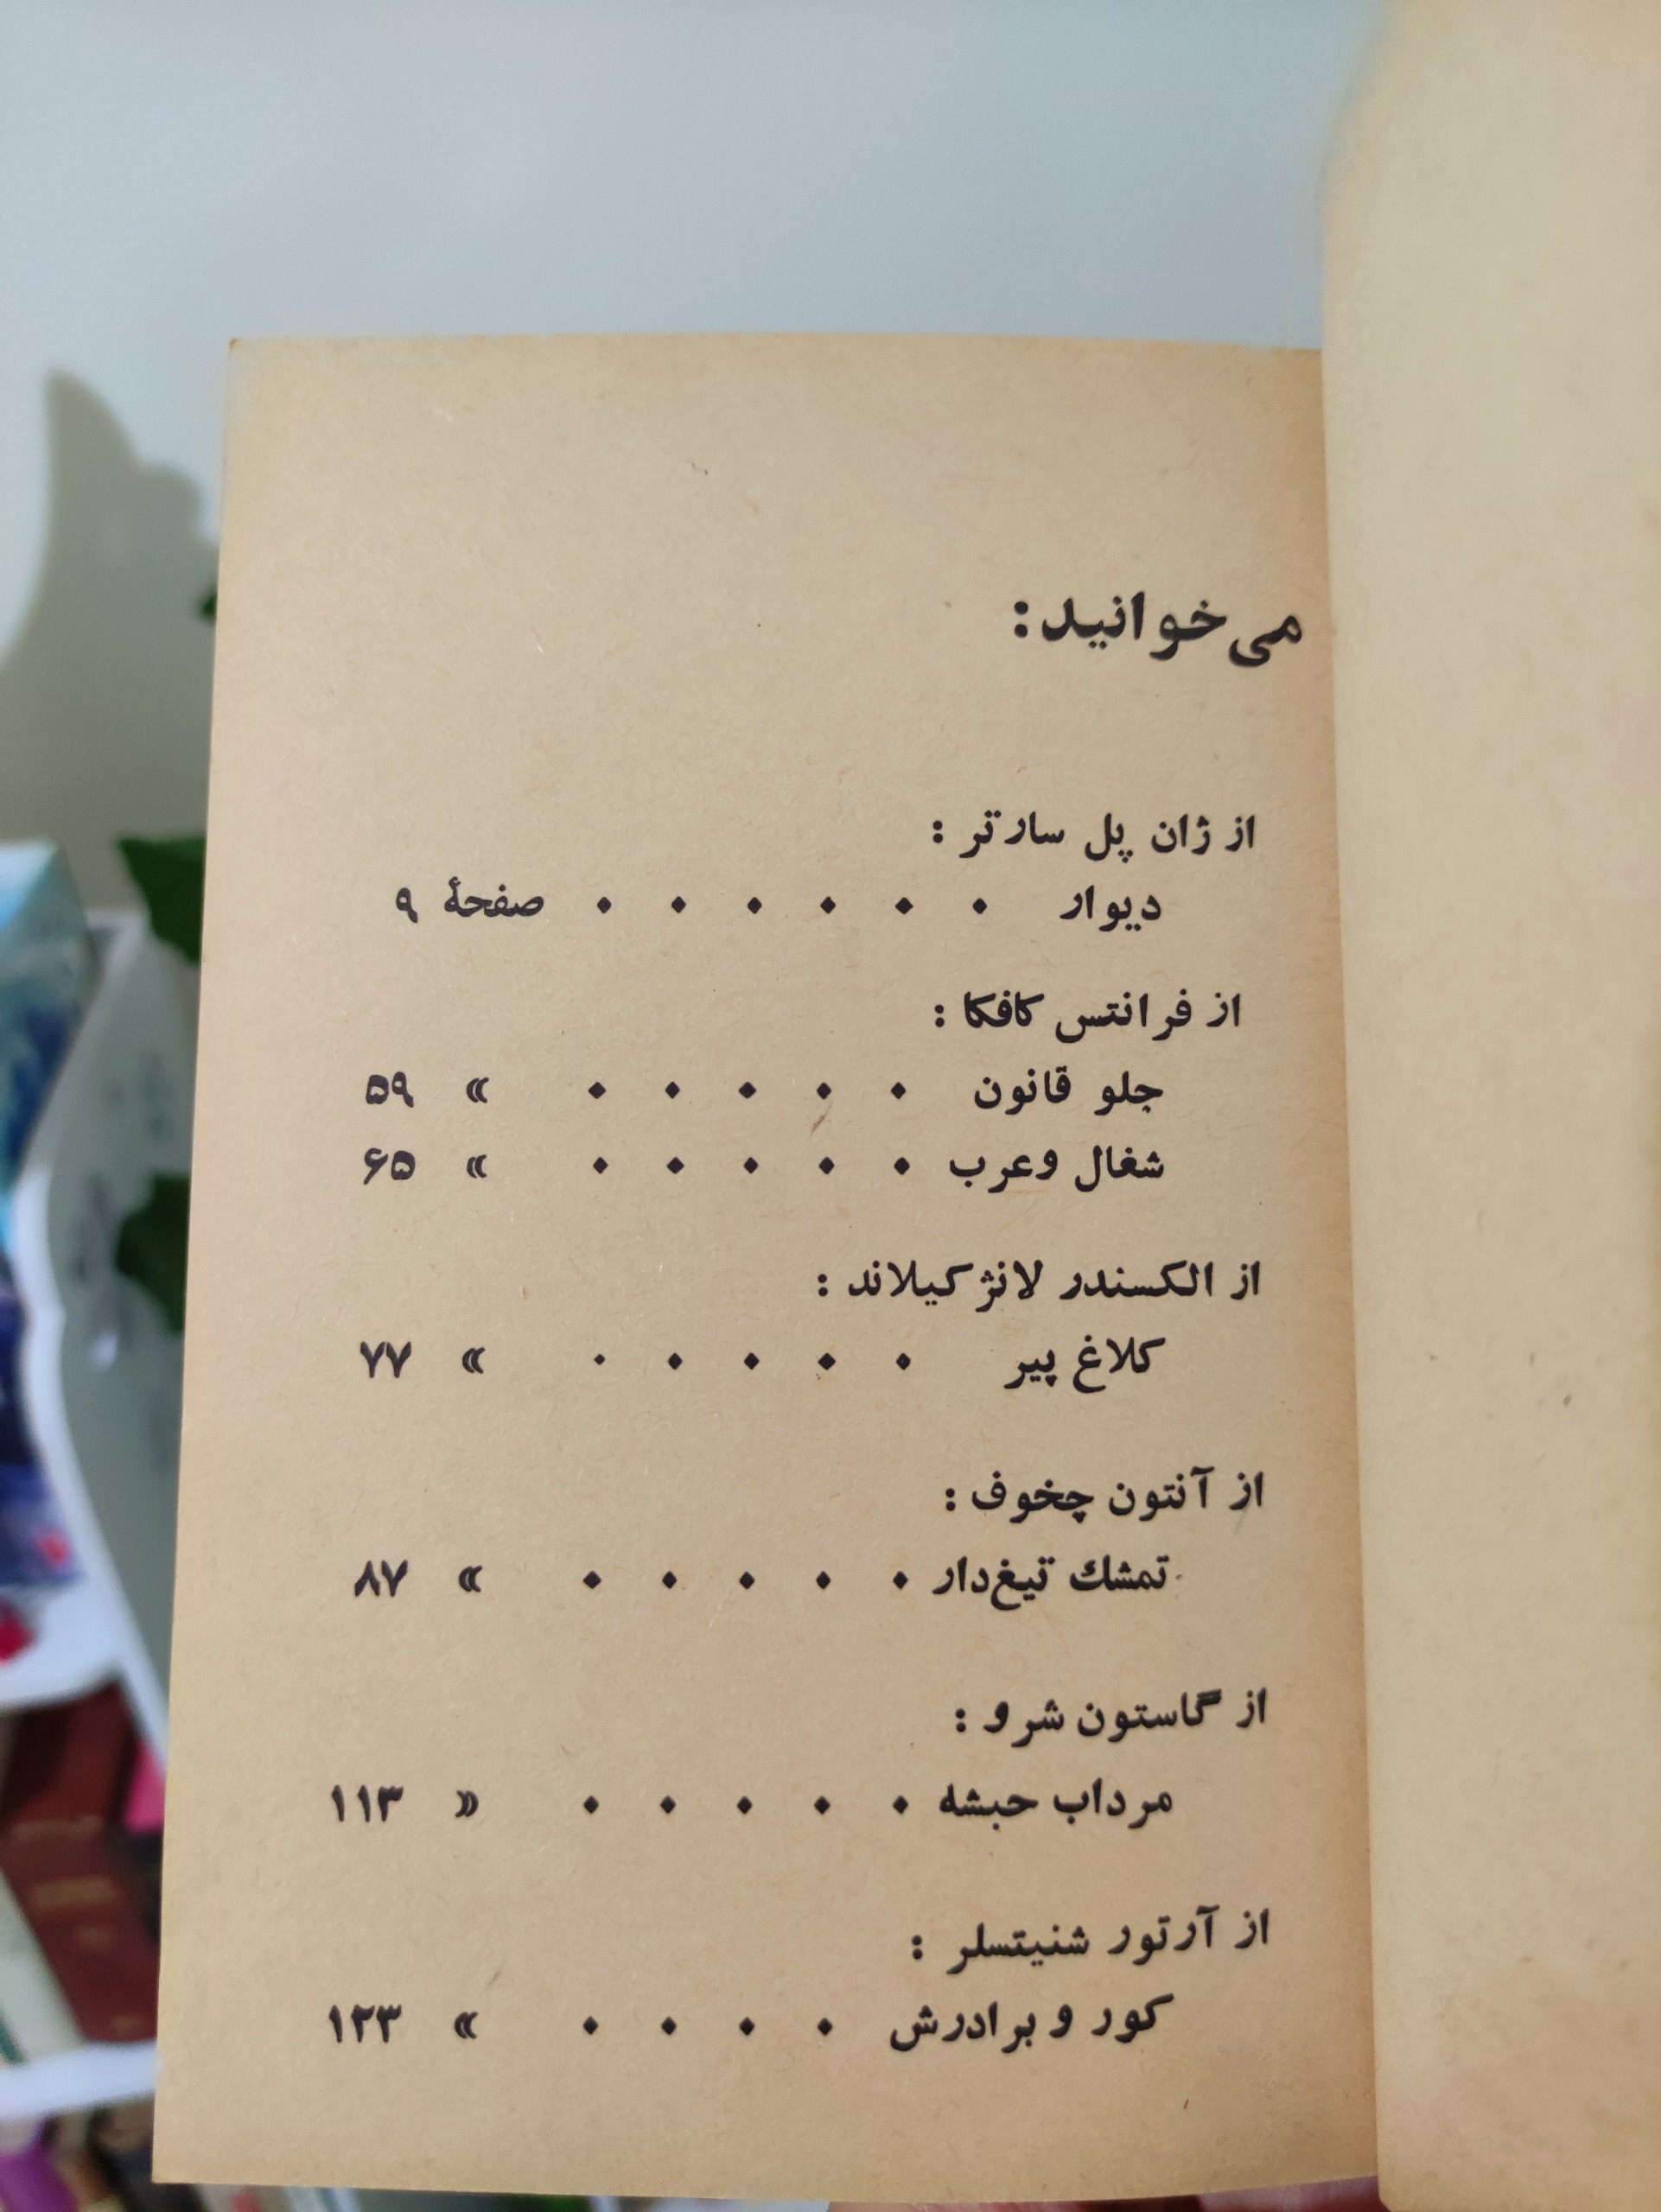 می‌خوانید:
از ژان پل سارتر :
دیوار • • • • • • صفحهٔ ۹
از فرانتس کافکا :
جلو قانون • • • • • » ۵۹
شغال وعرب • • • • • » ۶۵
از الکسندر لانژ کیلاند :
کلاغ پیر • • • • • » ۷۷
از آنتون چخوف :
تمشك تیغ‌دار • • • • • » ۸۷
از گاستون شرو :
مرداب حبشه • • • • • « ۱۱۳
از آرتور شنیتسلر :
کور و برادرش • • • • » ۱۲۳